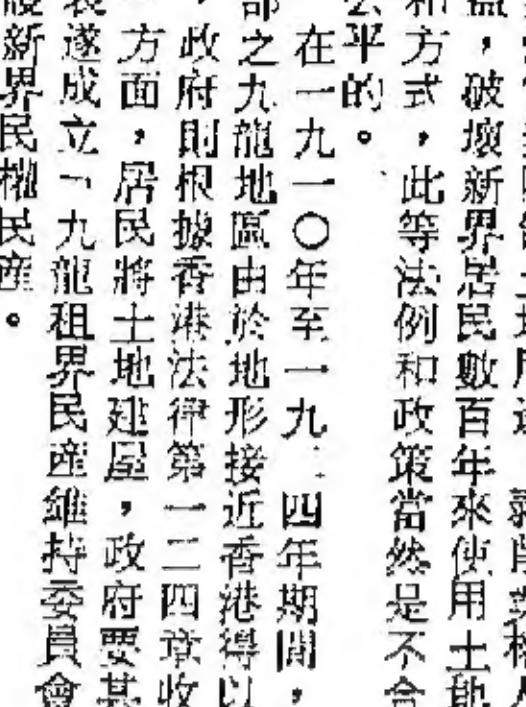 益，破壞新界居民數百年來使用土地
和方式，此等法例和政策當然是不合
公平的。
在一九一〇年至一九四年期間，
部之九龍地區由於地形接近香港得以
，政府則根據香港法律第一二四章收
方面，居民將土地建屋，政府要其
遂成立「九龍租界民產維持委員會
新界民權民產。